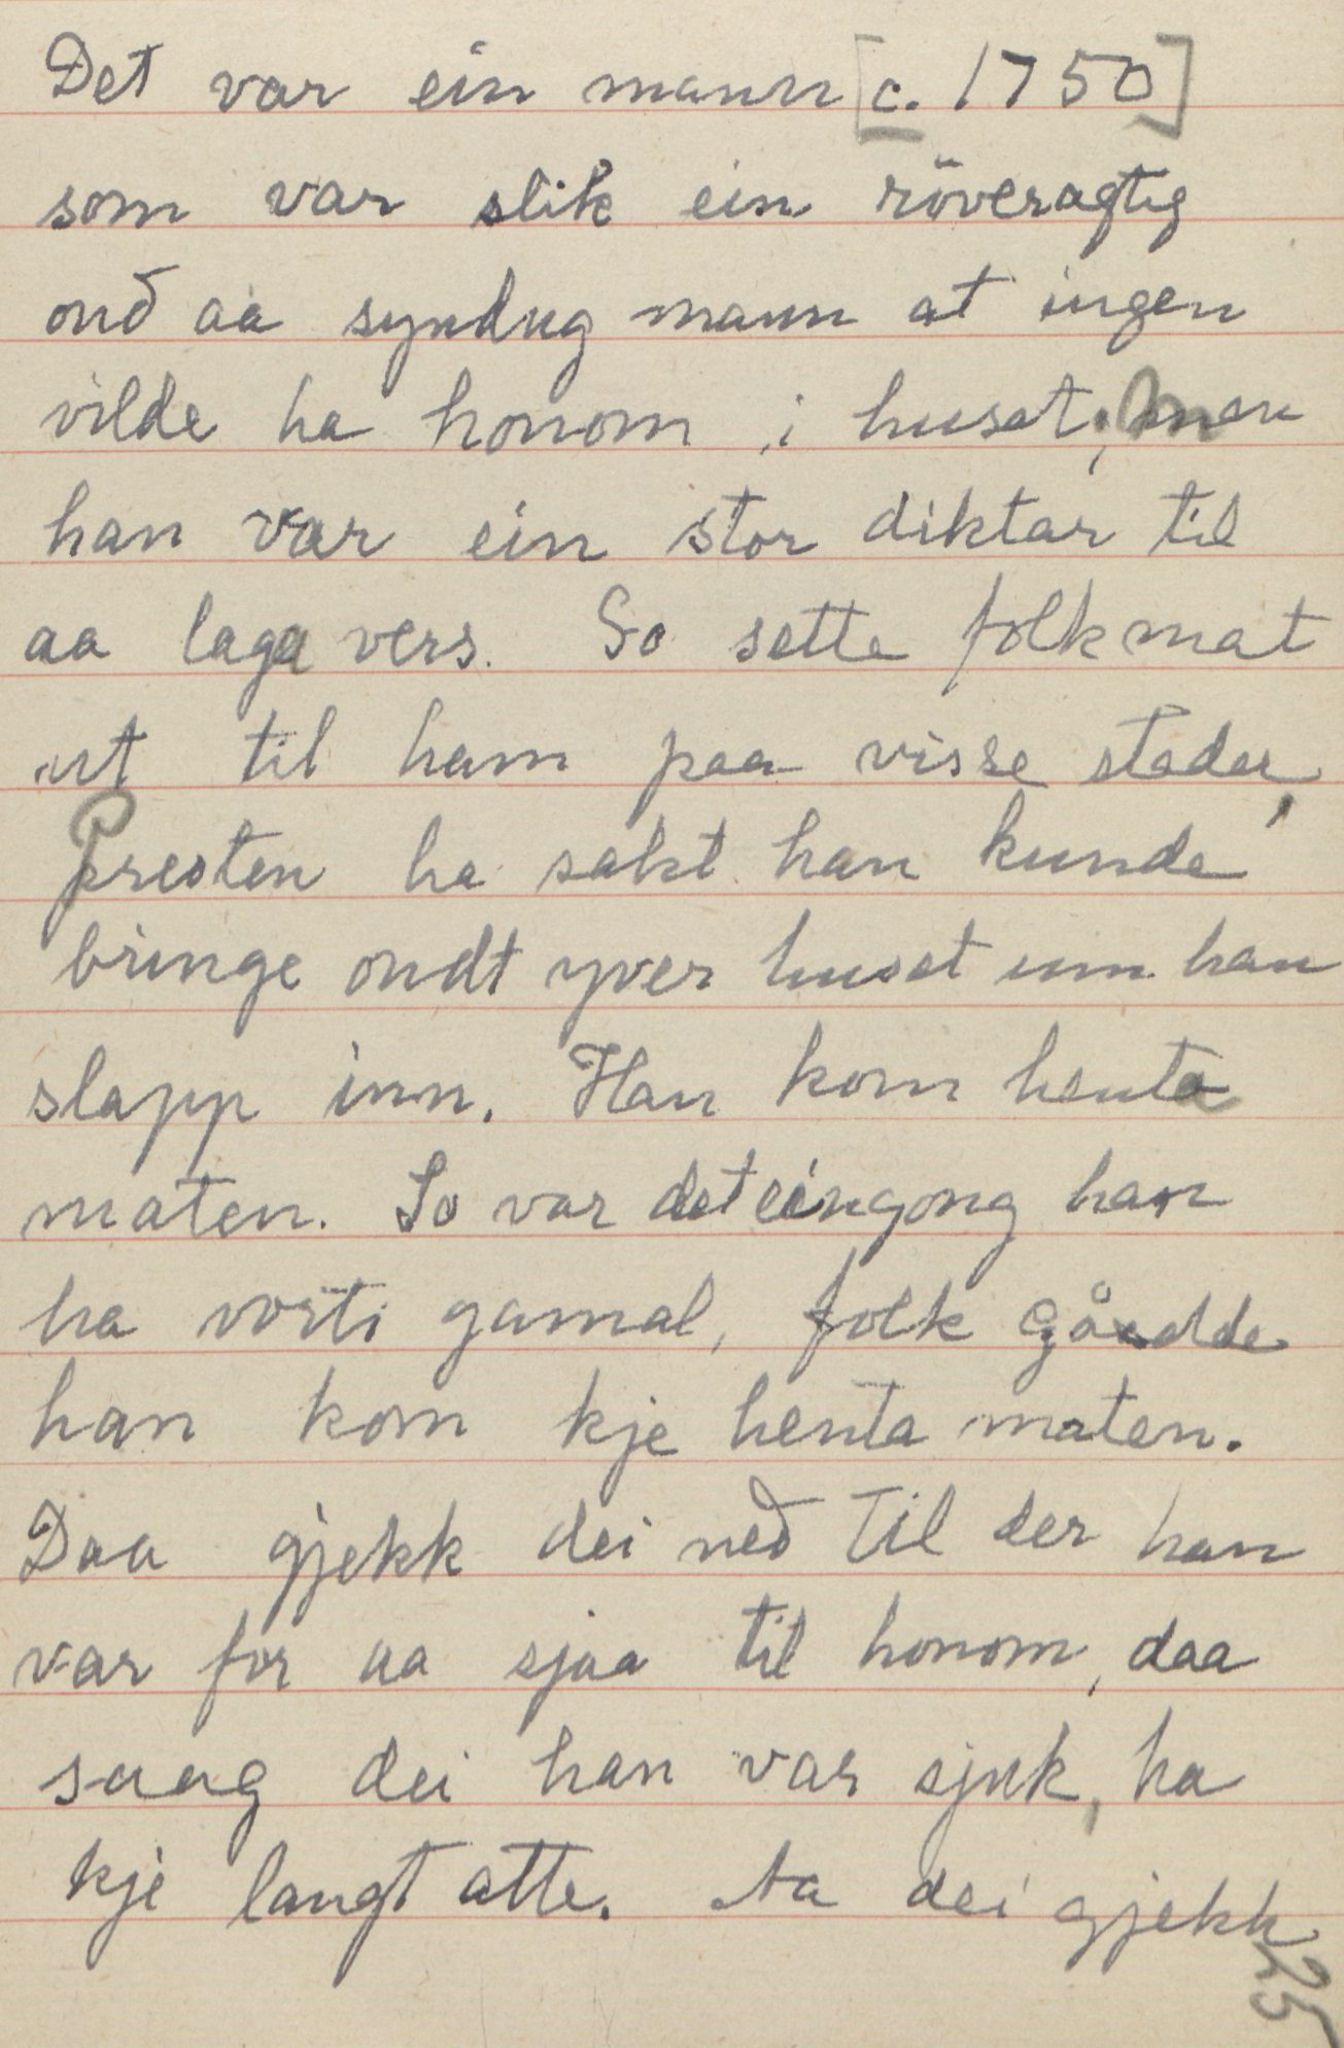 Det var ein mann [c. 1750]
som var slik ein röveragtig
ond aa syndug mann at ingen
vilde ha honom i huset; men
han var ein stor diktar til
aa laga vers. So sette folk mat
ut til ham paa visse steder,
Presten ha sakt han kunde
bringe ondt yver huset um han
slapp inn. Han kom henta
maten. So var det eingong han
ha vorti gamal, folk gådde
han kom kje henta maten.
Daa gjekk dei ned til der han
var for aa sjaa til honom, daa
saag dei han var sjuk, ha
kje langt atte. Aa dei gjekk
25